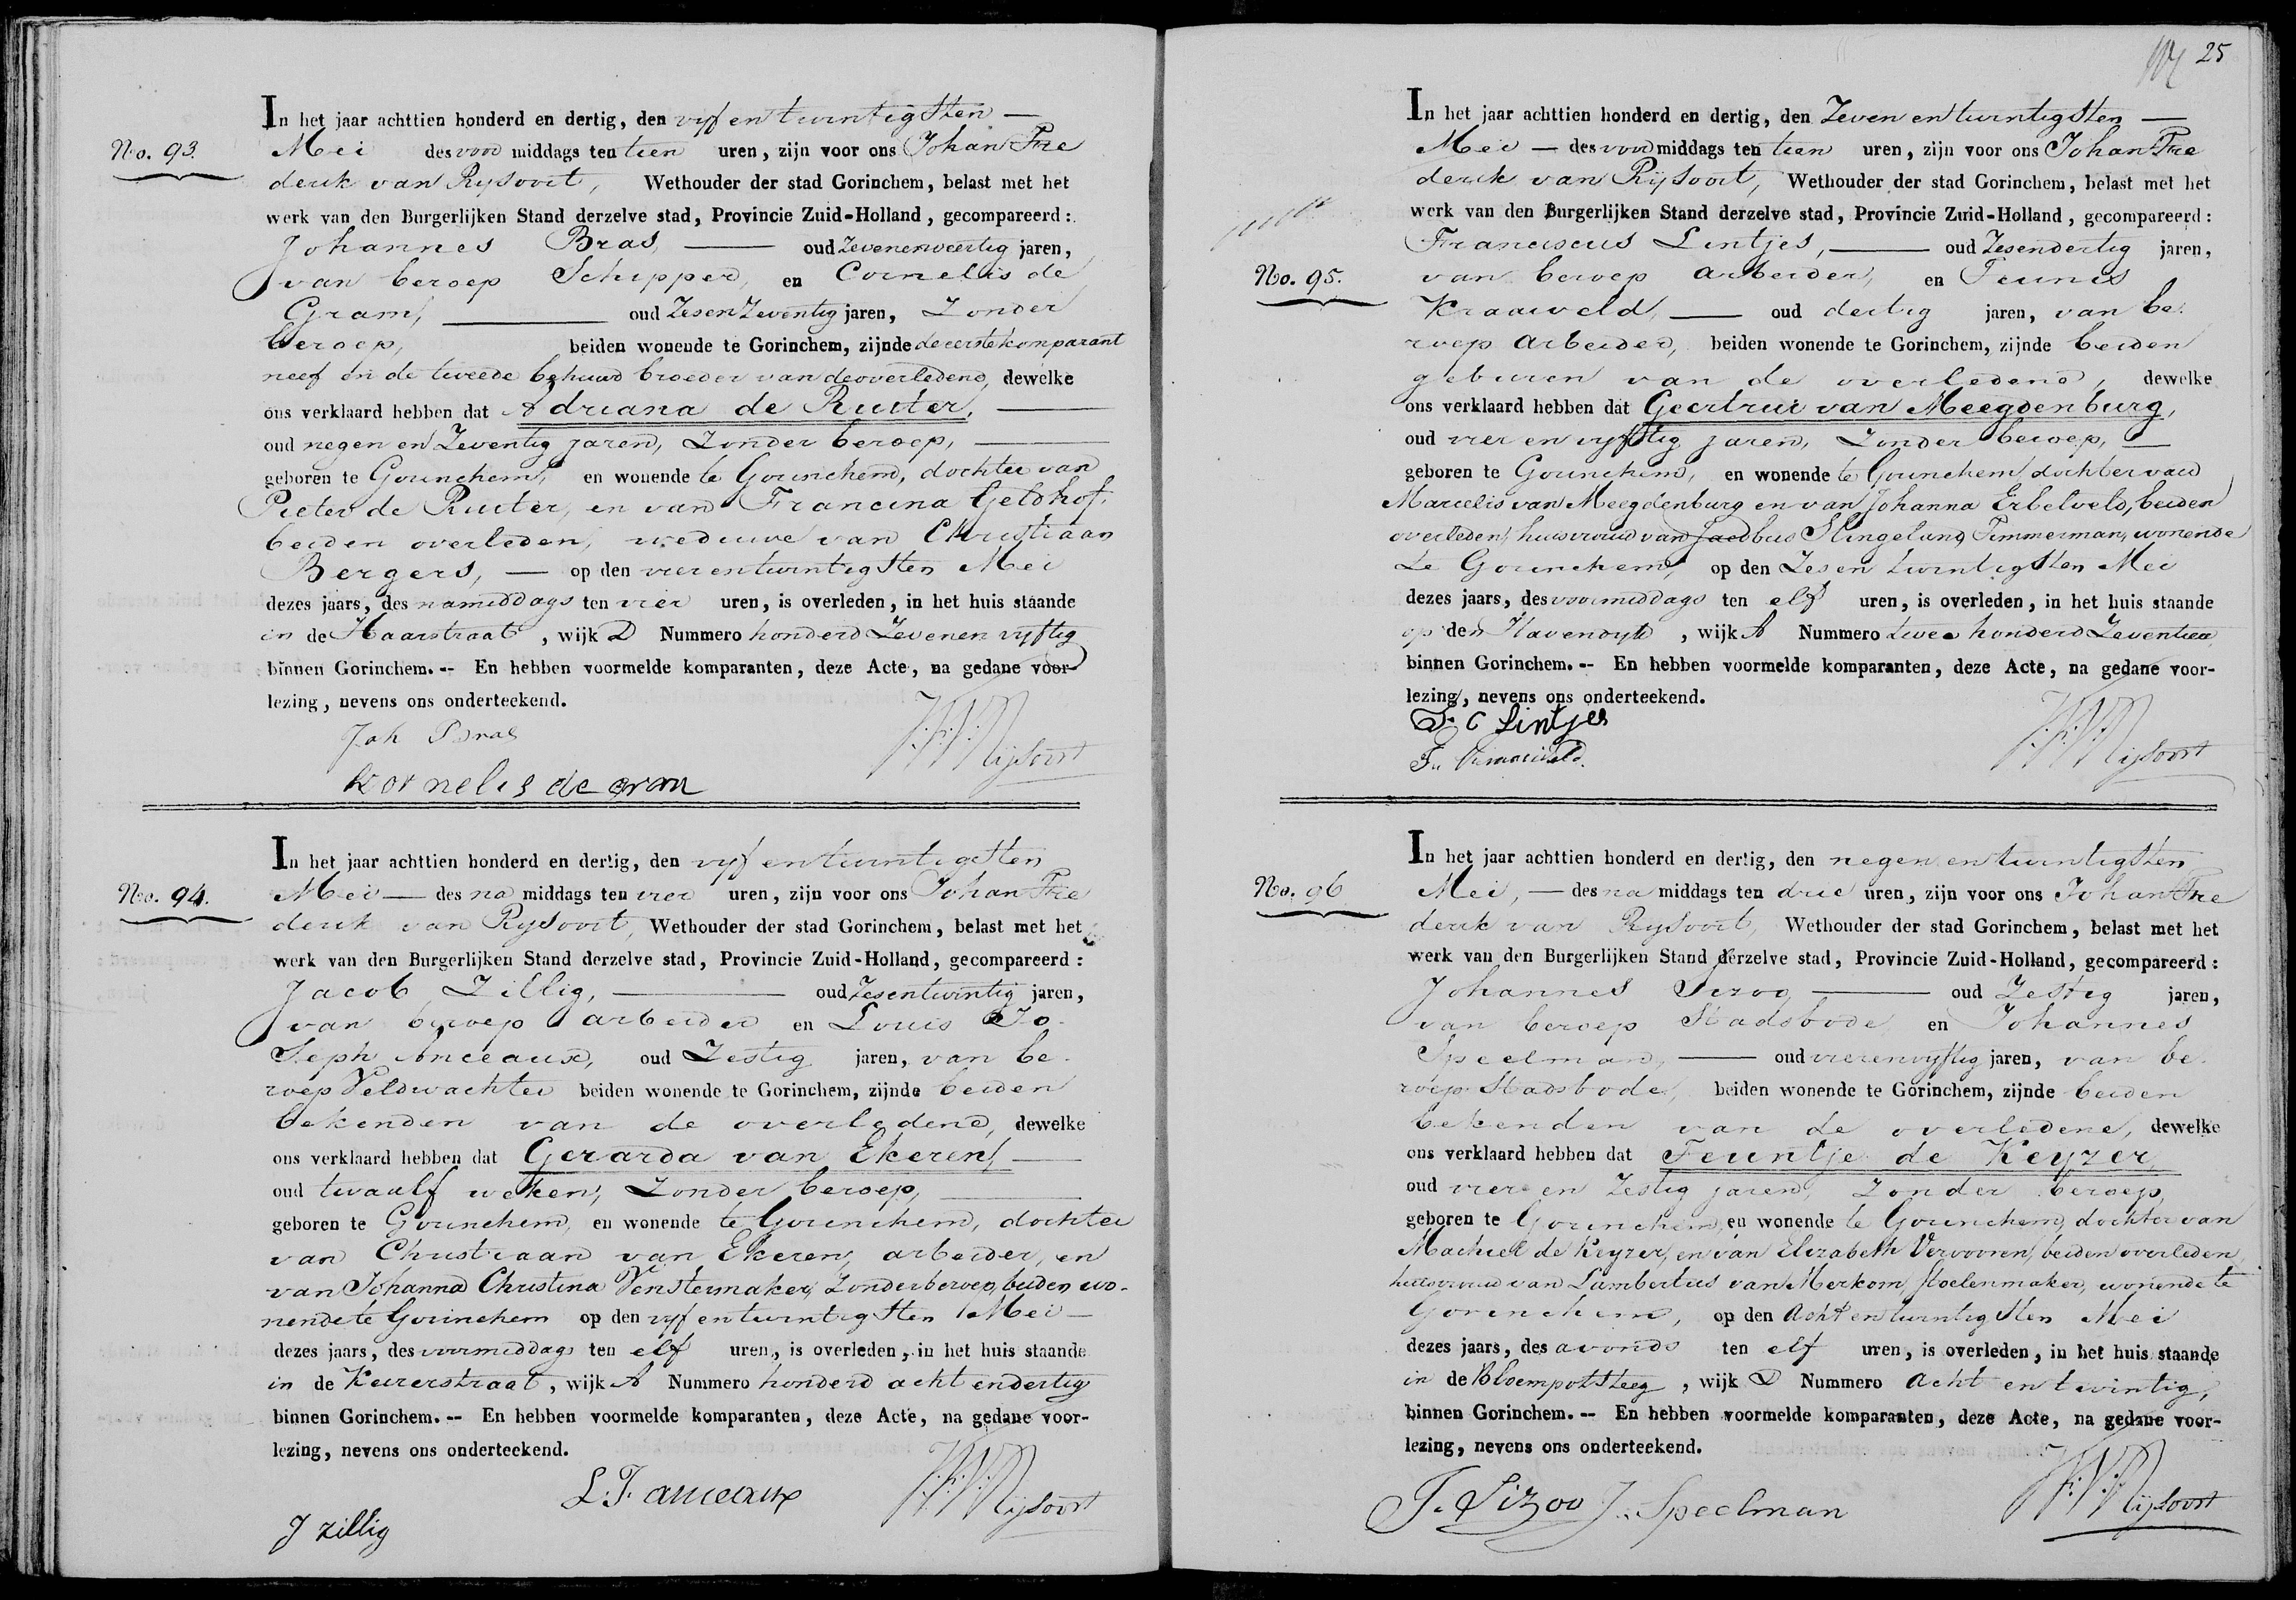 No. 93.
In het jaar achttien honderd en dertig, den vyf en twintigsten —
Mei des voor middags ten tien uren, zijn voor ons Johan Fre
derik van Rysoort, Wethouder der stad Gorinchem, belast met het
werk van den Burgerlijken Stand derzelve stad, Provincie Zuid-Holland, gecompareerd:
Johannes Bras, — oud Zevenenveertig jaren,
van beroep Schipper, en Cornelis de
Gram, — oud Zesen Zeventig jaren, Zonder
beroep, beiden wonende te Gorinchem, zijnde de eerste komparant
neef en de tweede behuwd broeder van de overledene, dewelke
ons verklaard hebben dat Adriana de Ruiter, —
oud negen en Zeventig jaren, Zonder beroep, —
geboren te Gorinchem, en wonende te Gorinchem, dochter van
Pieter de Ruiter, en van Francina Geldhof,
beiden overleden, weduwe van Christiaan
Bergers, — op den vierentwintigsten Mei
dezes jaars, des namiddags ten vier uren, is overleden, in het huis staande
in de Haarstraat, wijk D Nummero honderd Zevenen vyftig
binnen Gorinchem. -- En hebben voormelde komparanten, deze Acte, na gedane voor-
lezing, nevens ons onderteekend.
Joh Bras
J.F.V. Rijsoort
Kornelis de gram
No. 94.
In het jaar achttien honderd en dertig, den vyf en twintigsten
Mei — des na middags ten vier uren, zijn voor ons Johan Fre
derik van Rysoort, Wethouder der stad Gorinchem, belast met het
werk van den Burgerlijken Stand derzelve stad, Provincie Zuid-Holland, gecompareerd:
Jacob Zillig, — oud Zesentwintig jaren,
van beroep arbeider en Louis Jo-
seph Anceaux, oud Zestig jaren, van be-
roep Veldwachter beiden wonende te Gorinchem, zijnde beiden
bekenden van de overledene, dewelke
ons verklaard hebben dat Gerarda van Ekeren, —
oud twaalf weken, Zonder beroep, —
geboren te Gorinchem, en wonende te Gorinchem, dochter
van Christiaan van Ekeren, arbeider, en
van Johanna Christina Venstermaker, Zonder beroep, beiden wo-
nende te Gorinchem op den vyf en twintigsten Mei —
dezes jaars, des voormiddags ten elf uren, is overleden, in het huis staande
in de Keizerstraat, wijk A Nummero honderd acht en dertig
binnen Gorinchem. -- En hebben voormelde komparanten, deze Acte, na gedane voor-
lezing, nevens ons onderteekend.
L. J. anceaux
J.F.V. Rijsoort
J zillig
25
No. 95.
In het jaar achttien honderd en dertig, den Zeven en twintigsten —
Mei — des voor middags ten tien uren, zijn voor ons Johan Fre
derik van Rijsoort, Wethouder der stad Gorinchem, belast met het
werk van den Burgerlijken Stand derzelve stad, Provincie Zuid-Holland, gecompareerd:
Franciscus Lintjes, — oud Zesendertig jaren,
van beroep arbeider, en Teunis
Kraaiveld, — oud dertig jaren, van be-
roep Arbeider, beiden wonende te Gorinchem, zijnde beiden
geburen van de overledene, dewelke
ons verklaard hebben dat Geertrui van Meegdenburg,
oud vier en vyftig jaren, Zonder beroep, —
geboren te Gorinchem, en wonende te Gorinchem dochter van
Marcelis van Meegdenburg en van Johanna Erbelveld, beiden
overleden, huisvrouw van Jacobus Slingeland, Timmerman, wonende
te Gorinchem, op den Zes en twintigsten Mei
dezes jaars, des voormiddags ten elf uren, is overleden, in het huis staande
op den Havendyk, wijk A Nummero twee honderd Zeventien
binnen Gorinchem. -- En hebben voormelde komparanten, deze Acte, na gedane voor-
lezing, nevens ons onderteekend.
F. C Lintjes
J.F.V. Rijsoort
No. 96
In het jaar achttien honderd en dertig, den negen en twintigsten
Mei, — des na middags ten drie uren, zijn voor ons Johan Fre
derik van Rysoort, Wethouder der stad Gorinchem, belast met het
werk van den Burgerlijken Stand derzelve stad, Provincie Zuid-Holland, gecompareerd:
Johannes Sizoo — oud Zestig jaren,
van beroep Stadsbode en Johannes
Speelman, — oud vierenvyftig jaren, van be-
roep Stadsbode, beiden wonende te Gorinchem, zijnde beiden
bekenden van de overledene, dewelke
ons verklaard hebben dat Teuntje de Keyzer
oud vier en Zestig jaren, Zonder beroep,
geboren te Gorinchem, en wonende te Gorinchem, dochter van
Machiel de Keyzer, en van Elizabeth Vervooren, beiden overleden,
huisvrouw van Lambertus van Merkom, stoelenmaker, wonende te
Gorinchem, op den Acht en twintigsten Mei
dezes jaars, des avonds ten elf uren, is overleden, in het huis staande
in de Bloempotsteeg, wijk D Nummero Acht en twintig,
binnen Gorinchem. -- En hebben voormelde komparanten, deze Acte, na gedane voor-
lezing, nevens ons onderteekend.
J. Sizoo J. Speelman
J.F.V. Rijsoort